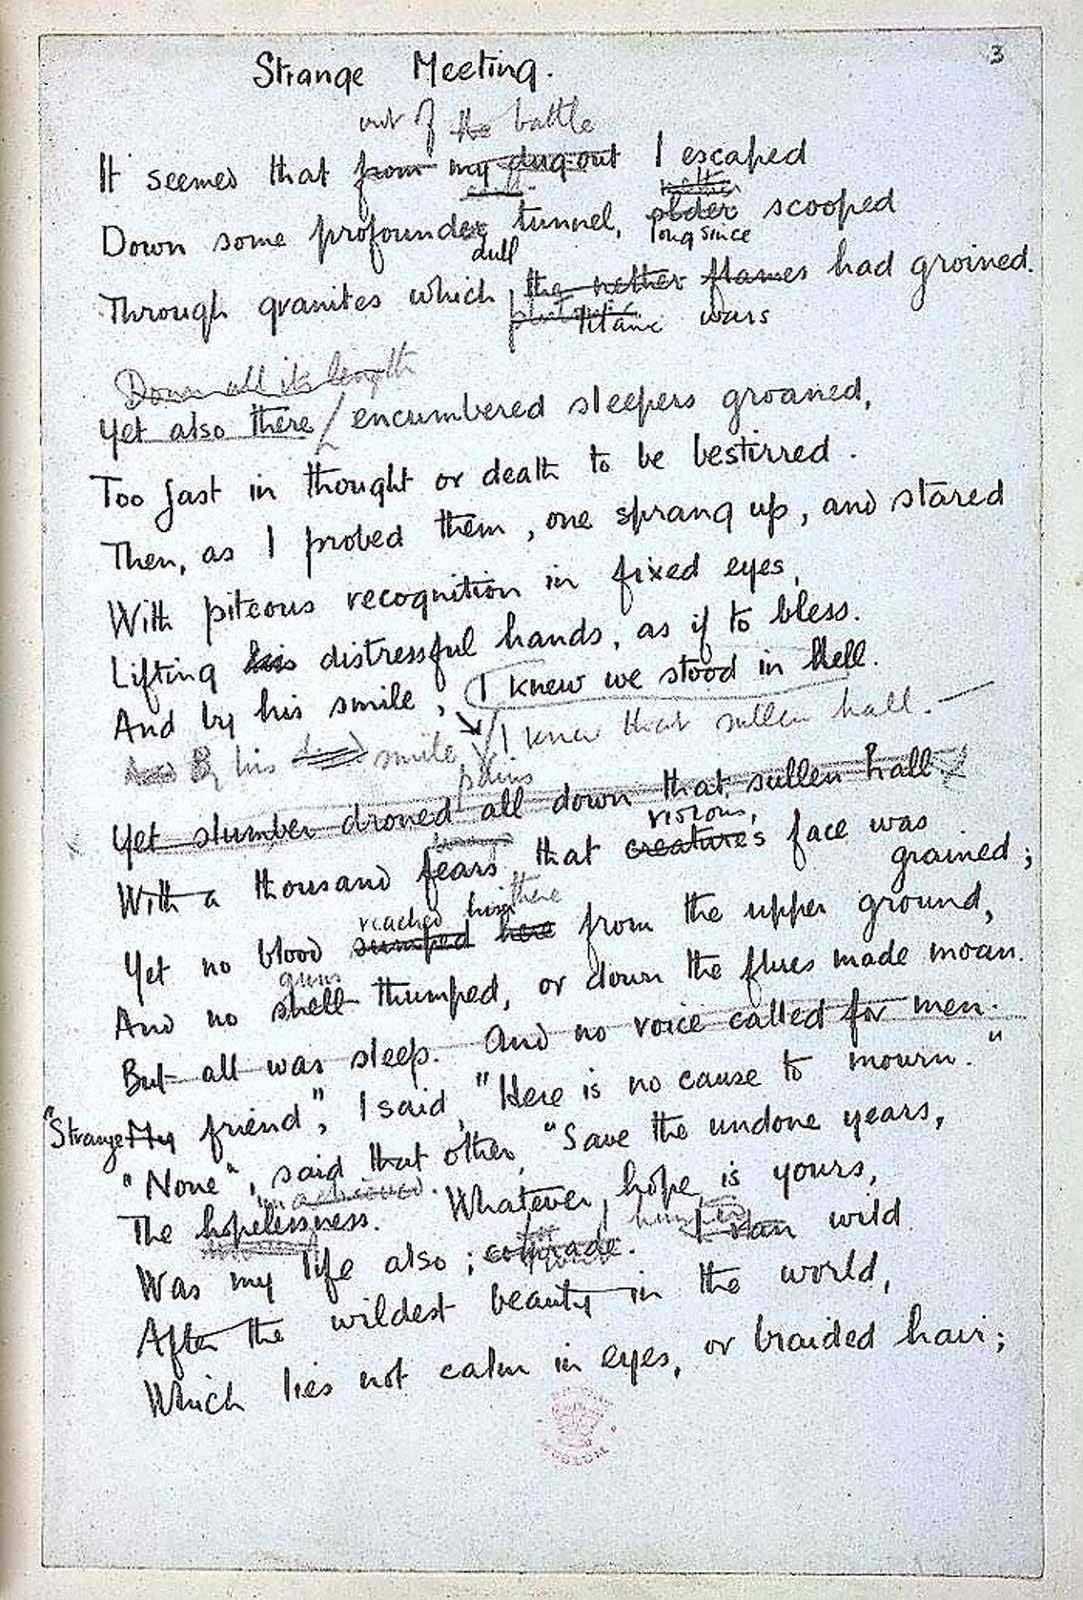 3
Strange Meeting.
out of the battle
It seemed that from my dug-out I escaped
Down some profounder tunnel, older scooped
dull long since
Through granites which the nether flames had groined.
titanic wars
Down all its length
Yet also there encumbered sleepers groaned,
Too fast in thought or death to be bestirred.
Then, as I probed them, one sprang up, and stared
With piteous recognition in fixed eyes,
Lifting his distressful hands, as if to bless.
And by his smile, I knew we stood in Hell.
And By his smile I knew that sullen hall.
pains
Yet slumber droned all down that sullen hall
visions,
With a thousand fears that creatures face was
grained;
reached him there
Yet no blood sumped here from the upper ground,
guns
And no shell thumped, or down the flues made moan.
But all was sleep. And no voice called for men.
"Strange My friend", I said, "Here is no cause to mourn."
"None", said that other, "Save the undone years,
achieved
The hopelessness. Whatever hope is yours,
Was my life also; comrade. I ran wild
After the wildest beauty in the world,
Which lies not calm in eyes, or braided hair;